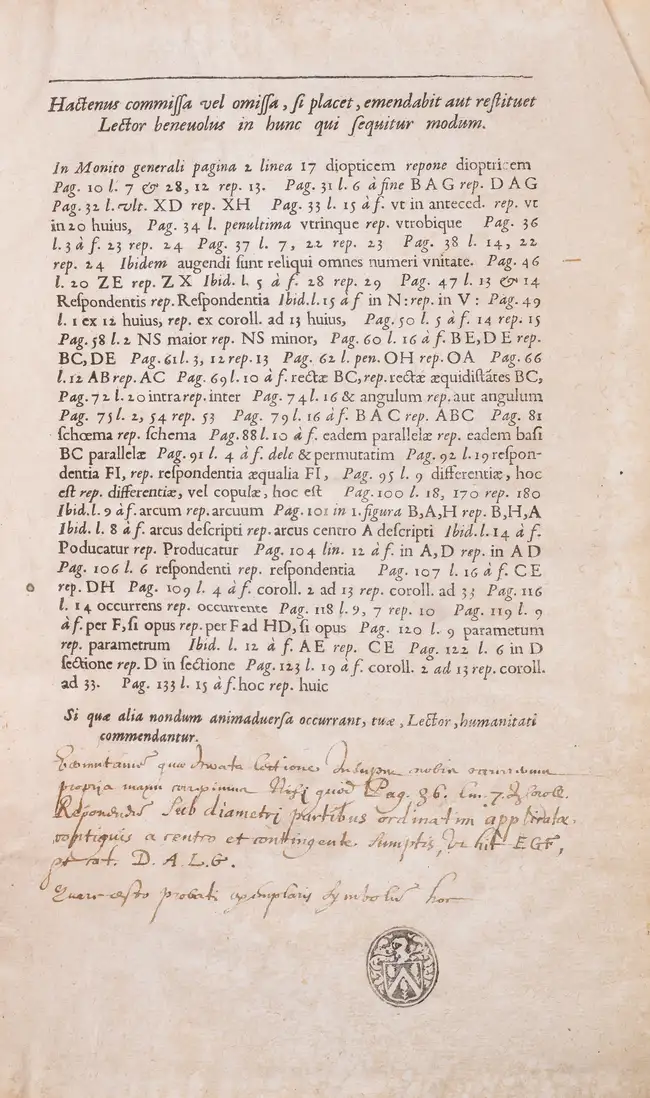 Hactenus commiſſa vel omiſſa, ſi placet, emendabit aut reſtituet
Lector beneuolus in hunc qui ſequitur modum.
In Monito generali pagina 2 linea 17 diopticem repone dioptricem
Pag. 10 l. 7 & 28, 12 rep. 13. Pag. 31 l. 6 à fine BAG rep. DAG
Pag. 32 l. vlt. XD rep. XH Pag. 33 l. 15 à f. vt in anteced. rep. vt
in 20 huius, Pag. 34 l. penultima vtrinque rep. vtrobique Pag. 36
l. 3 à f. 23 rep. 24 Pag. 37 l. 7, 22 rep. 23 Pag. 38 l. 14, 22
rep. 24 Ibidem augendi ſunt reliqui omnes numeri vnitate. Pag. 46
l. 20 ZE rep. ZX Ibid. l. 5 à f. 28 rep. 29 Pag. 47 l. 13 & 14
Reſpondentis rep. Reſpondentia Ibid. l. 15 à f in N: rep. in V: Pag. 49
l. 1 ex 12 huius, rep. ex coroll. ad 13 huius, Pag. 50 l. 5 à f. 14 rep. 15
Pag. 58 l. 2 NS maior rep. NS minor, Pag. 60 l. 16 à f. BE, DE rep.
BC, DE Pag. 61 l. 3, 12 rep. 13 Pag. 62 l. pen. OH rep. OA Pag. 66
l. 12 AB rep. AC Pag. 69 l. 10 à f. rectæ BC, rep. rectæ æquidiſtãtes BC,
Pag. 72 l. 20 intra rep. inter Pag. 74 l. 16 & angulum rep. aut angulum
Pag. 75 l. 2, 54 rep. 53 Pag. 79 l. 16 à f. BAC rep. ABC Pag. 81
ſchœma rep. ſchema Pag. 88 l. 10 à f. eadem parallelæ rep. eadem baſi
BC parallelæ Pag. 91 l. 4 à f. dele & permutatim Pag. 92 l. 19 reſpon-
dentia FI, rep. reſpondentia æqualia FI, Pag. 95 l. 9 differentiæ, hoc
eſt rep. differentiæ, vel copulæ, hoc eſt Pag. 100 l. 18, 170 rep. 180
Ibid. l. 9 à f. arcum rep. arcuum Pag. 101 in 1. figura B, A, H rep. B, H, A
Ibid. l. 8 à f. arcus deſcripti rep. arcus centro A deſcripti Ibid. l. 14 à f.
Poducatur rep. Producatur Pag. 104 lin. 12 à f. in A, D rep. in AD
Pag. 106 l. 6 reſpondenti rep. reſpondentia Pag. 107 l. 16 à f. CE
rep. DH Pag. 109 l. 4 à f. coroll. 2 ad 13 rep. coroll. ad 33 Pag. 116
l. 14 occurrens rep. occurrente Pag. 118 l. 9, 7 rep. 10 Pag. 119 l. 9
à f. per F, ſi opus rep. per F ad HD, ſi opus Pag. 120 l. 9 parametum
rep. parametrum Ibid. l. 12 à f. AE rep. CE Pag. 122 l. 6 in D
ſectione rep. D in ſectione Pag. 123 l. 19 à f. coroll. 2 ad 13 rep. coroll.
ad 33. Pag. 133 l. 15 à f. hoc rep. huic
Si quæ alia nondum animaduerſa occurrant, tuæ, Lector, humanitati
commendantur.
quæ lectione nobis
propria manu quod Pag. 36. lin. 7.
Sub diametri partibus ordinatim applicatæ
a centro et contingente sumptis, EGF,
D. A. L. G.
probati exemplaris hoc